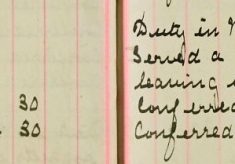 Duty in
Served a
leaving
30 Conferred
30 Conferred